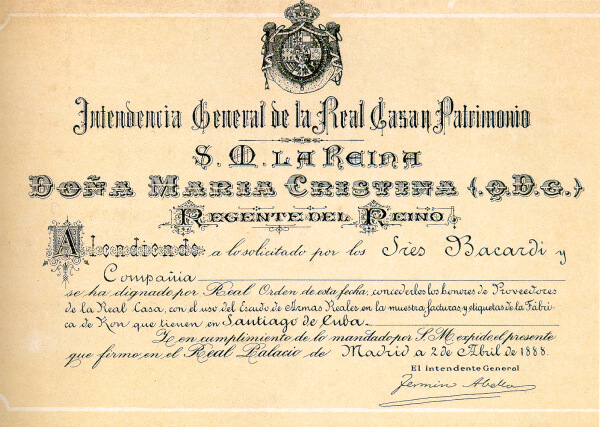 Intendencia General de la Real Casa y Patrimonio
S. M. LA REINA
DOÑA MARIA CRISTINA (.Q.D.G.)
REGENTE DEL REINO
Atendiendo a lo solicitado por los Sres Bacardi y
Compañia
se ha dignado por Real Orden de esta fecha, concederlos los honores de Proveedores
de la Real Casa, con el uso del Escudo de Armas Reales en la muestra, facturas y etiquetas de la Fábri-
ca de Ron que tienen en Santiago de Cuba.
Y en cumplimiento de lo mandado por S. M. expido el presente
que firmo en el Real Palacio de Madrid a 2 de Abril de 1888.
El Intendente General
Fermin Abella